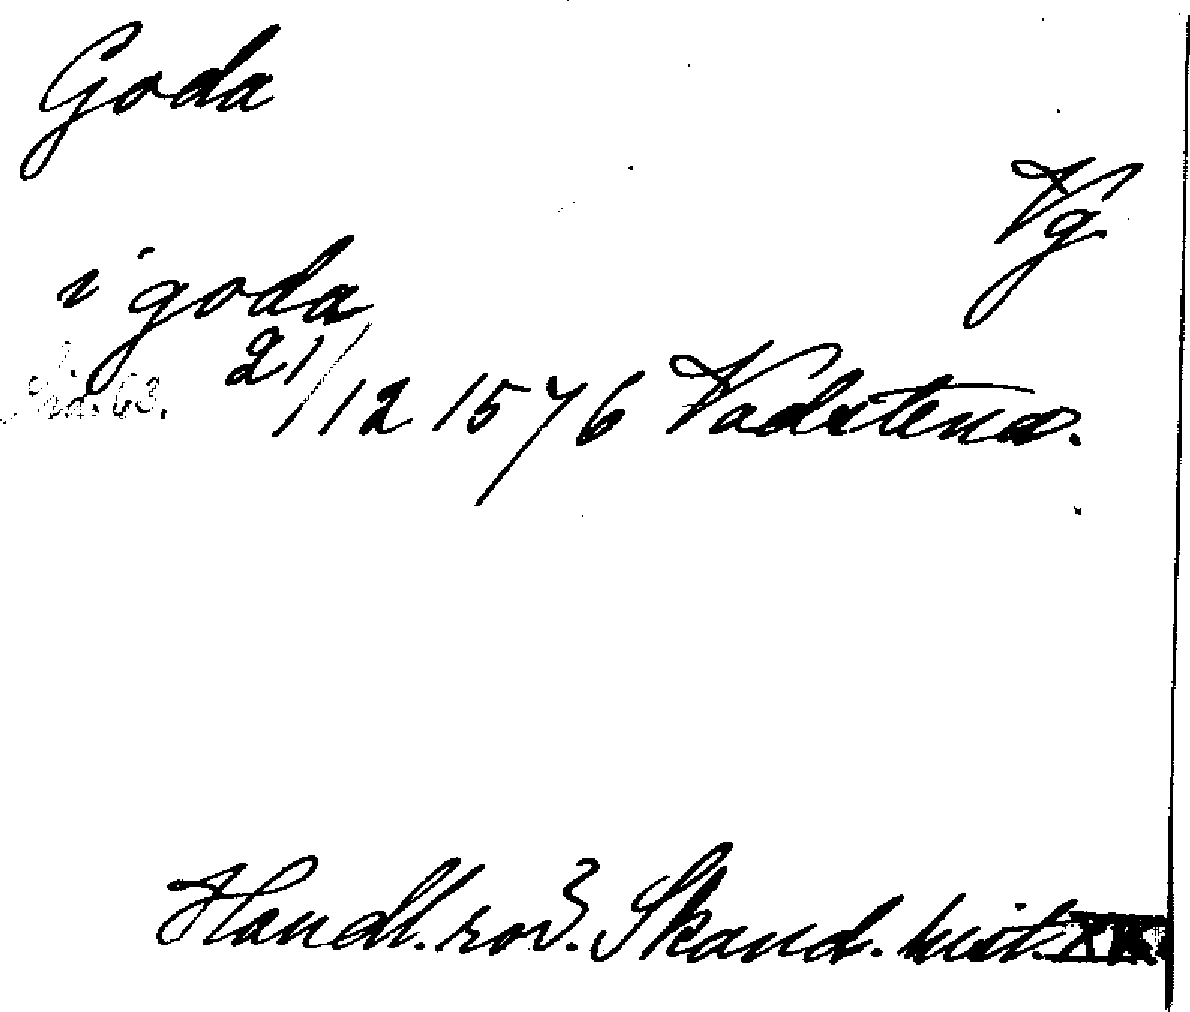 Goda
Vg
i goda
Sid. 63.
21/12 1576 Vadstena.
Handl. rör. Skand. hist.